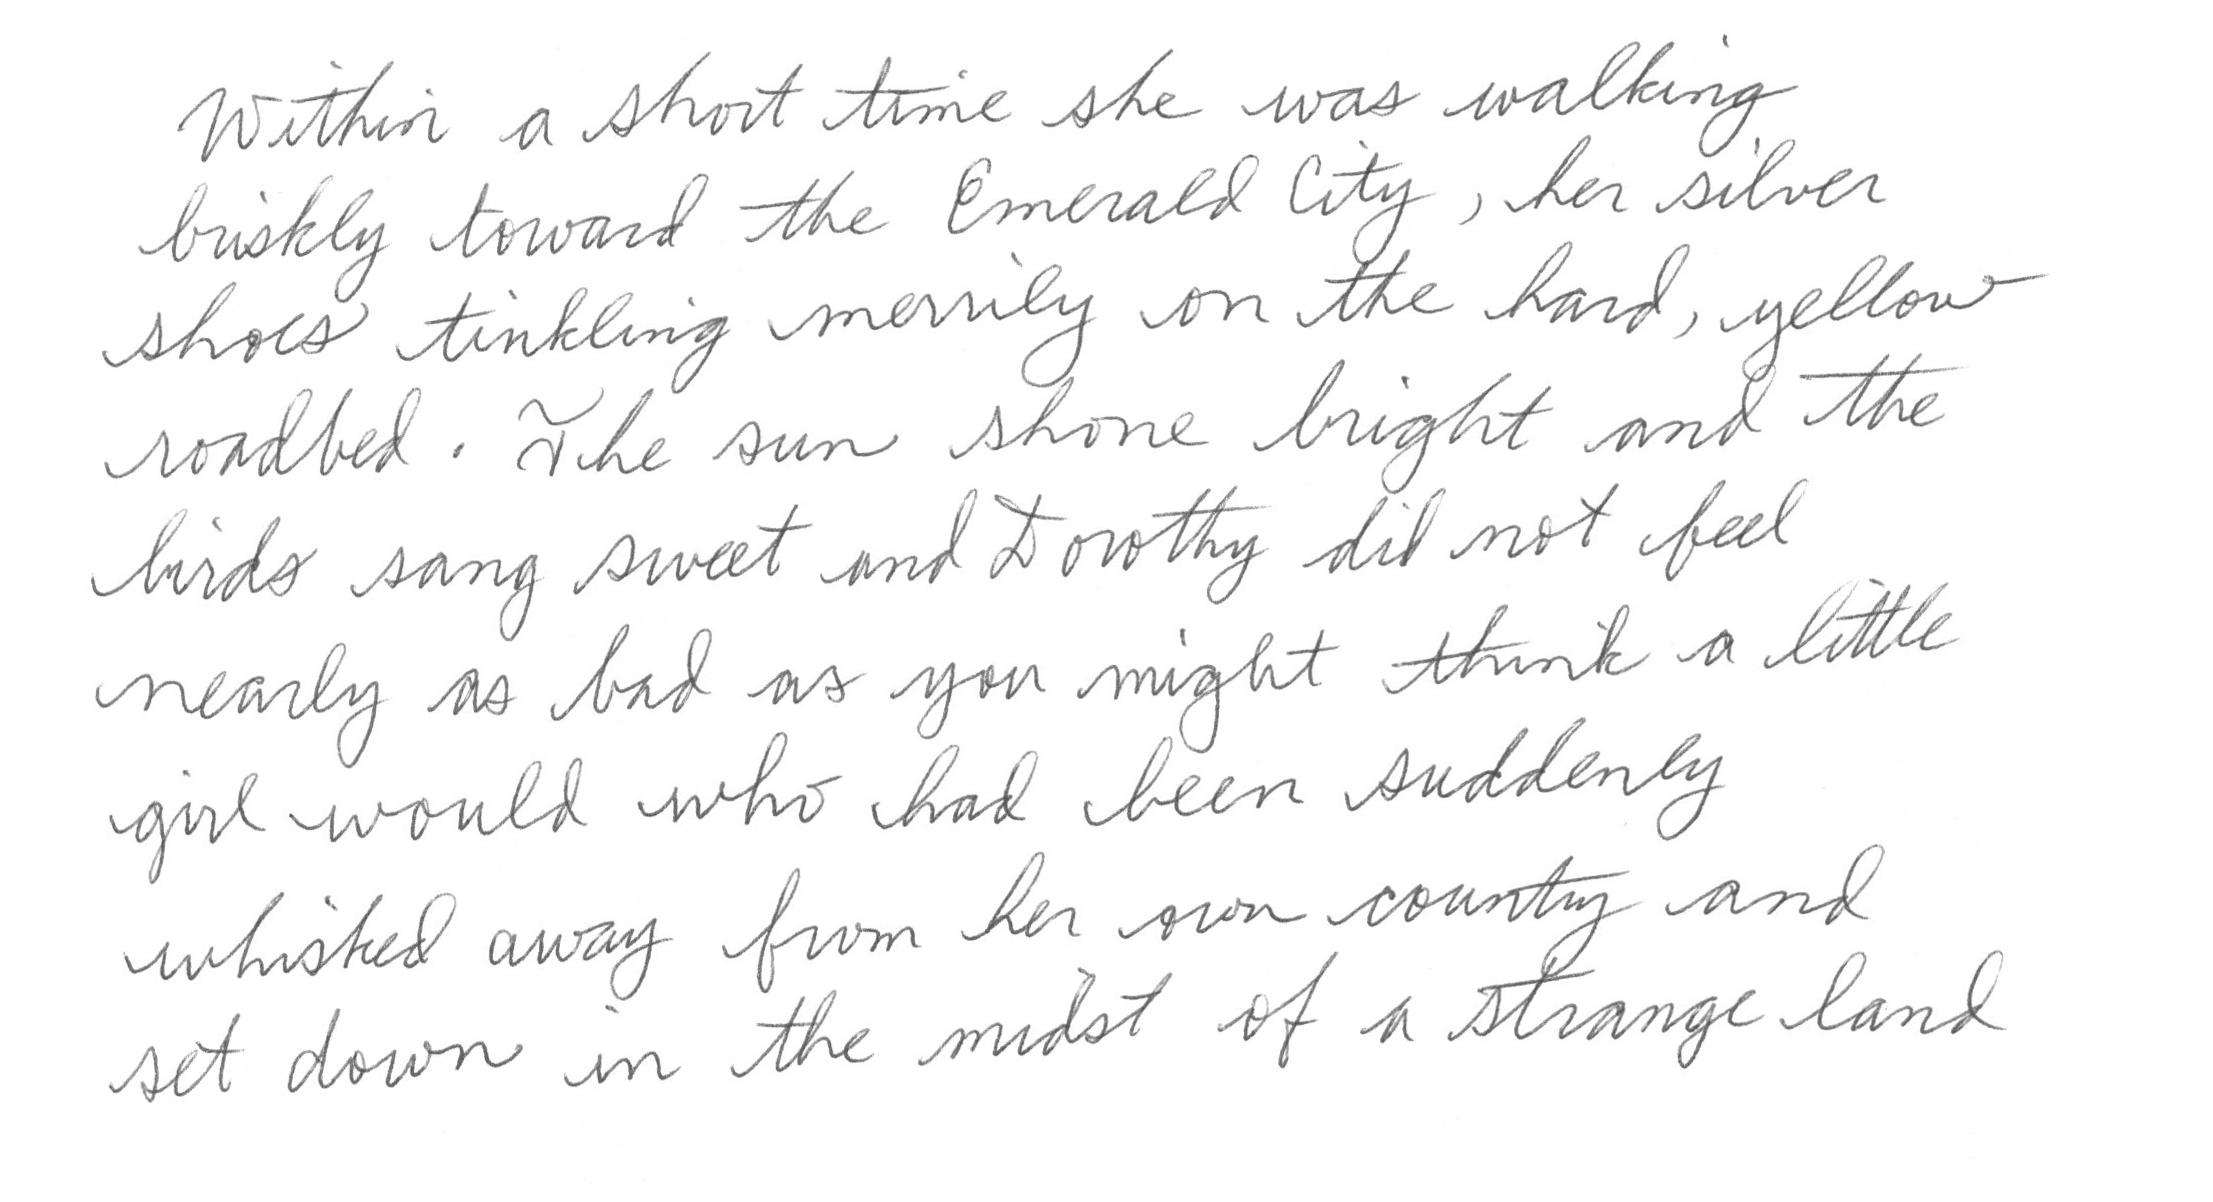 Within a short time she was walking
briskly toward the Emerald City, her silver
shoes tinkling merrily on the hard, yellow
roadbed. The sun shone bright and the
birds sang sweet and Dorothy did not feel
nearly as bad as you might think a little
girl would who had been suddenly
whisked away from her own country and
set down in the midst of a strange land